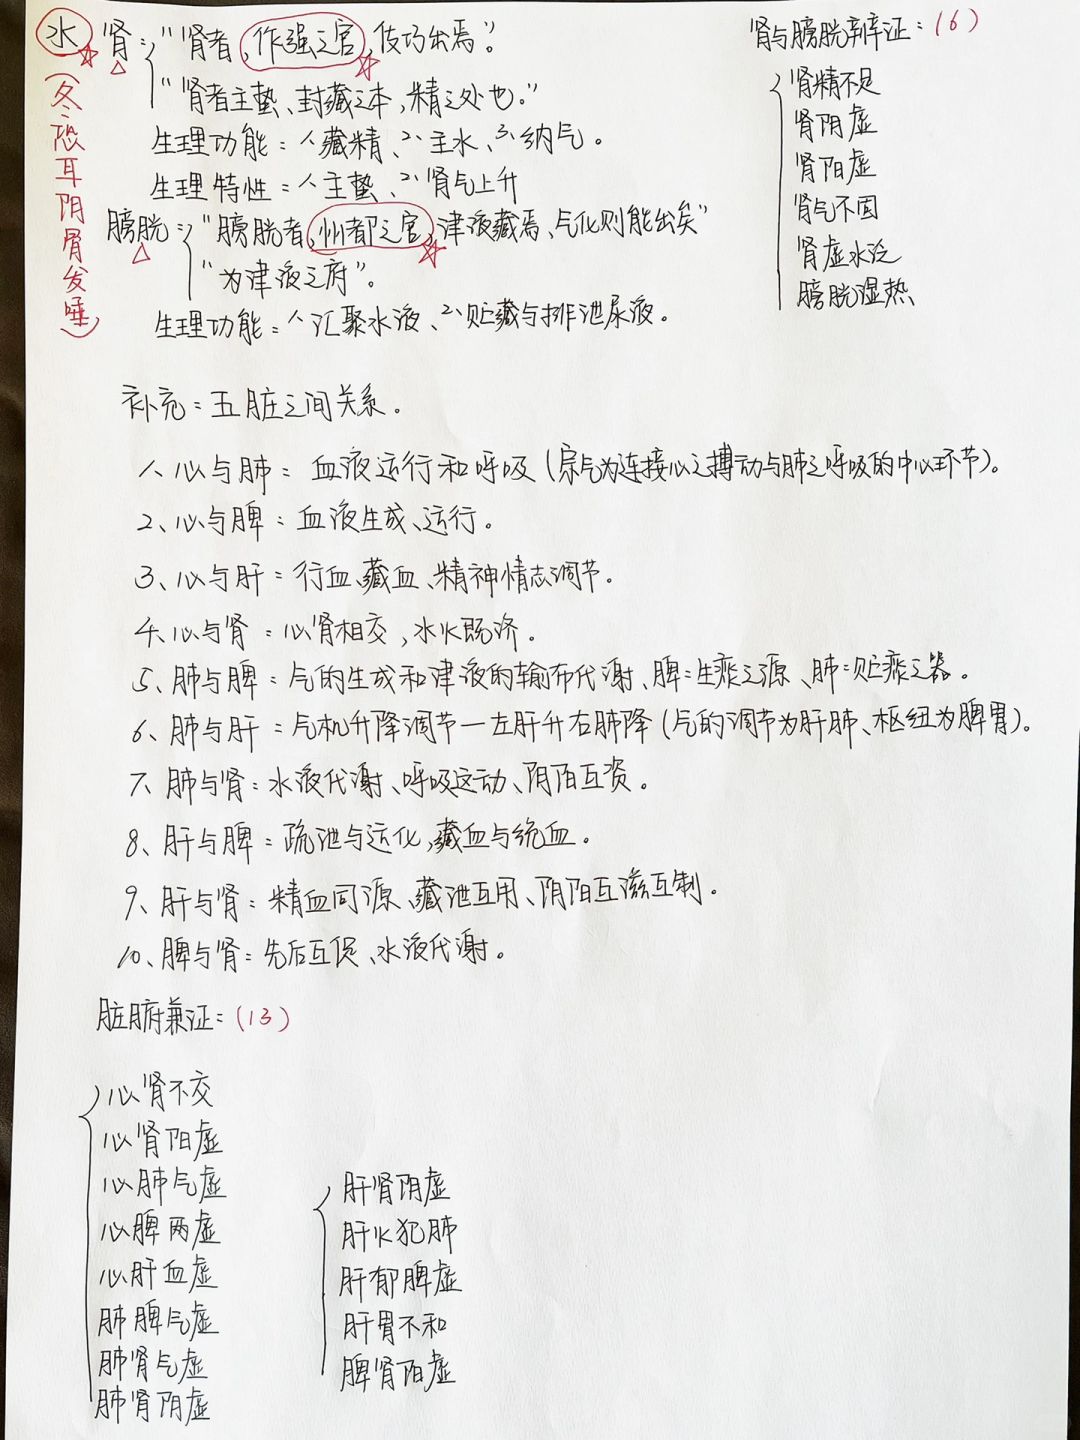 水 肾："肾者，作强之官，伎巧出焉"。
"肾者主蛰、封藏之本，精之处也。"
生理功能：1、藏精、2、主水、3、纳气。
生理特性：1、主蛰、2、肾气上升
膀胱："膀胱者，州都之官，津液藏焉、气化则能出矣"
"为津液之府"。
生理功能：1、汇聚水液、2、贮藏与排泄尿液。
(冬恐耳阴骨发唾)
肾与膀胱辨证：(6)
肾精不足
肾阴虚
肾阳虚
肾气不固
肾虚水泛
膀胱湿热
补充：五脏之间关系。
1、心与肺：血液运行和呼吸(宗气为连接心之搏动与肺之呼吸的中心环节)。
2、心与脾：血液生成、运行。
3、心与肝：行血、藏血、精神情志调节。
4、心与肾：心肾相交，水火既济。
5、肺与脾：气的生成和津液的输布代谢、脾：生痰之源、肺：贮痰之器。
6、肺与肝：气机升降调节—左肝升右肺降(气的调节为肝肺、枢纽为脾胃)。
7、肺与肾：水液代谢、呼吸运动、阴阳互资。
8、肝与脾：疏泄与运化，藏血与统血。
9、肝与肾：精血同源、藏泄互用、阴阳互滋互制。
10、脾与肾：先后互促、水液代谢。
脏腑兼证：(13)
心肾不交
心肾阳虚
心肺气虚
心脾两虚
心肝血虚
肺脾气虚
肺肾气虚
肺肾阴虚
肝肾阴虚
肝火犯肺
肝郁脾虚
肝胃不和
脾肾阳虚